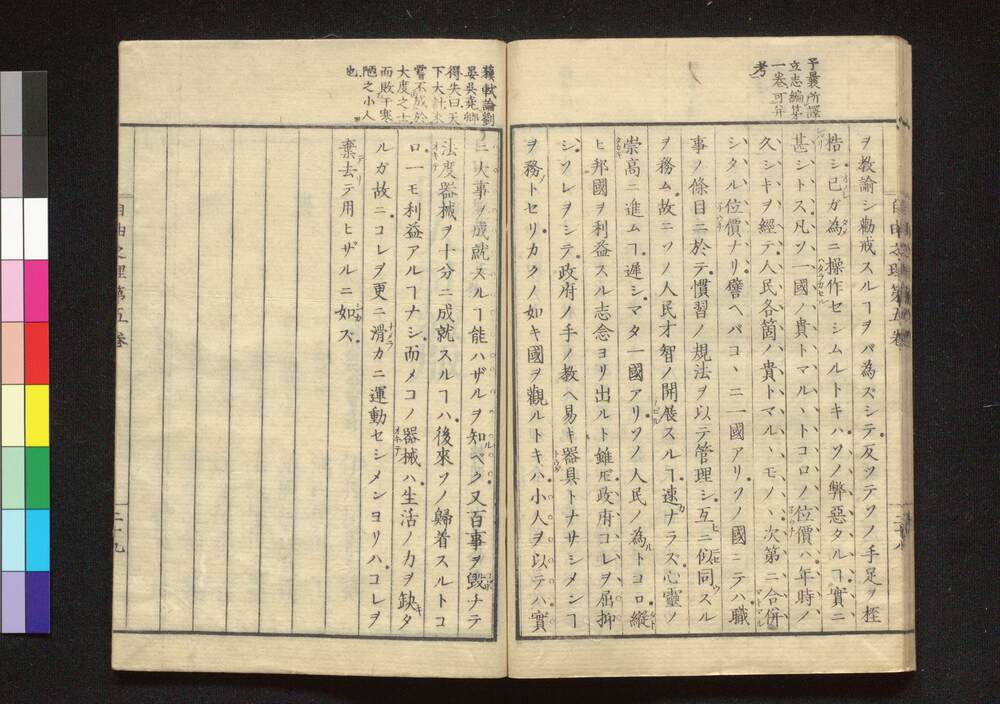 予曩所譯
立志編第
一卷可并
考
ヲ教諭シ勸戒スルヿヲバ為ズシテ反ツテソノ手足ヲ桎
梏シ己ガ為ニ操作セシムルトキハソノ弊惡タルヿ實ニ
甚シトス凡ソ一國ノ貴トマルヽトコロノ位價ハ年時ノ
久シキヲ經テ人民各箇ノ貴トマルヽモノヽ次第ニ合併
シタル位價ナリ譬ヘバコヽニ一國アリソノ國ニテハ職
事ノ條目ニ於テ慣習ノ規法ヲ以テ管理シ互ニ似同スル
ヲ務ム故ニソノ人民才智ノ開展スルヿ速ナラズ心靈ノ
崇高ニ進ムヿ遲シマタ一國アリソノ人民ノ為ルトコロ縱
ヒ邦國ヲ利益スル志念ヨリ出ルト雖𪜈政府コレヲ屈抑
シソレヲシテ政府ノ手ノ教ヘ易キ器具トナサシメンヿ
ヲ務トセリカクノ如キ國ヲ觀ルトキハ小人ヲ以テハ實
自由之理第五卷
蘓軾論劉
晏吳堯卿
得失曰天
下大計未
嘗不成於
大度之士
而敗于寒
陋之小人
也
ニ大事ヲ成就スルヿ能ハザルヲ知ベク又百事ヲ毀ナテ
法度器械ヲ十分ニ成就スルヿハ後來ソノ歸着スルトコ
ロ一モ利益アルヿナシ而メコノ器械ハ生活ノ力ヲ缺タ
ルガ故ニコレヲ更ニ滑カニ運動セシメンヨリハコレヲ
棄去テ用ヒザルニ如ズ
自由之理第五卷
二十九